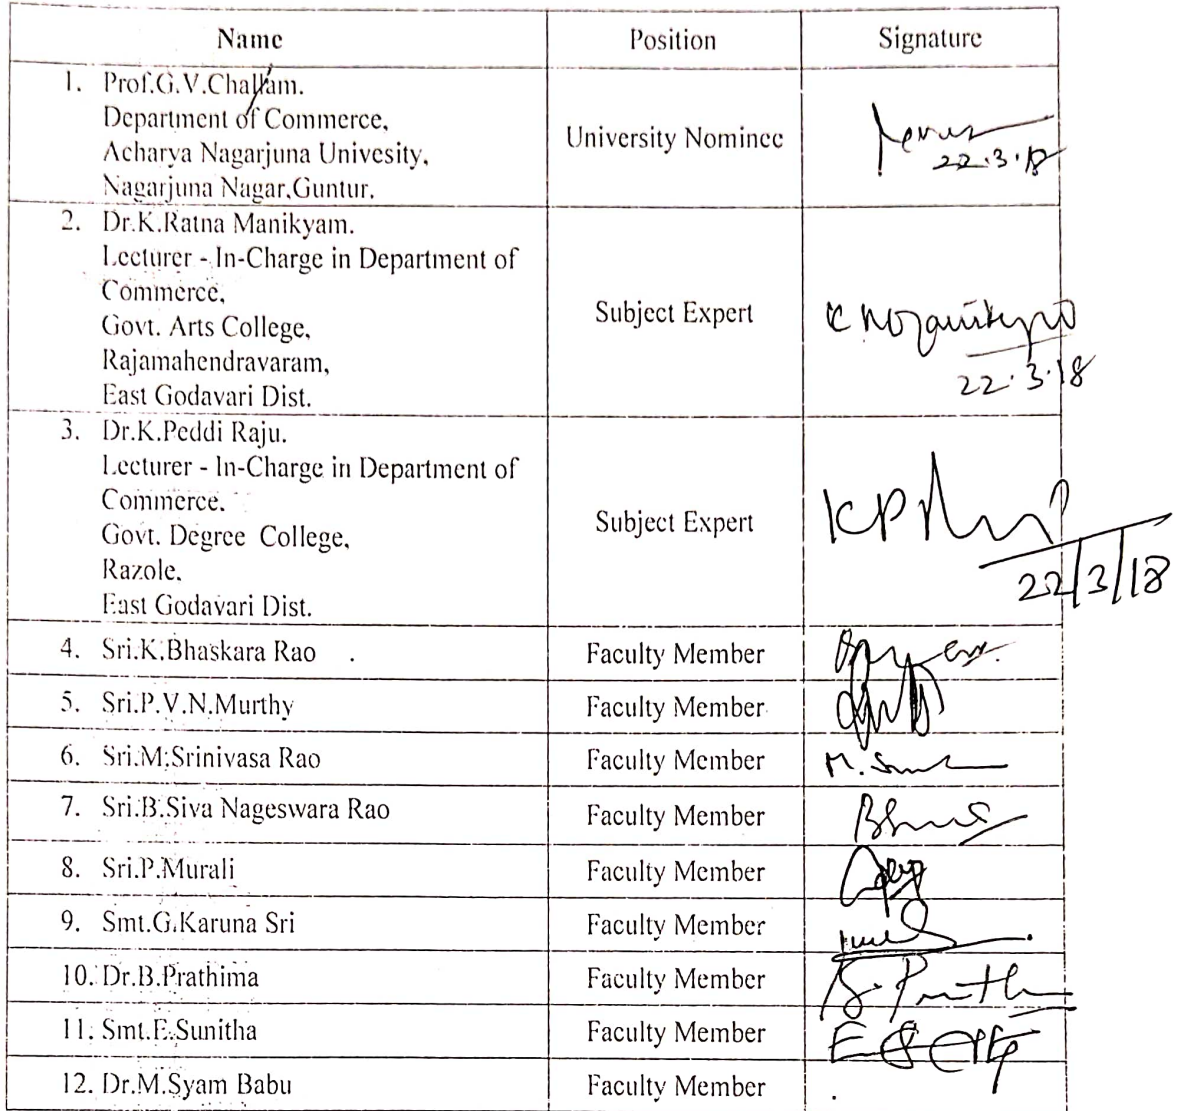 Name Position Signature
1. Prof.G.V.Challam.
Department of Commerce,
Acharya Nagarjuna Univesity,
Nagarjuna Nagar,Guntur.
University Nominee
22.3.18
2. Dr.K.Ratna Manikyam.
Lecturer - In-Charge in Department of
Commerce,
Govt. Arts College,
Rajamahendravaram,
East Godavari Dist.
Subject Expert
22.3.18
3. Dr.K.Peddi Raju.
Lecturer - In-Charge in Department of
Commerce.
Govt. Degree College,
Razole.
East Godavari Dist.
Subject Expert
22/3/18
4. Sri.K.Bhaskara Rao Faculty Member
5. Sri.P.V.N.Murthy Faculty Member
6. Sri.M.Srinivasa Rao Faculty Member M.
7. Sri.B.Siva Nageswara Rao Faculty Member
8. Sri.P.Murali Faculty Member
9. Smt.G.Karuna Sri Faculty Member
10. Dr.B.Prathima Faculty Member
11. Smt.E.Sunitha Faculty Member
12. Dr.M.Syam Babu Faculty Member